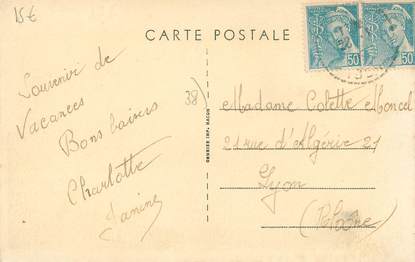 15€
CARTE POSTALE
50
50
Souvenir de
Vacances
Bons baisers
Charlotte
Janine
38
COMBIER IMP. MACON
Madame Colette Moncel
21 rue d'Algérie 21
Lyon
(Rhône)